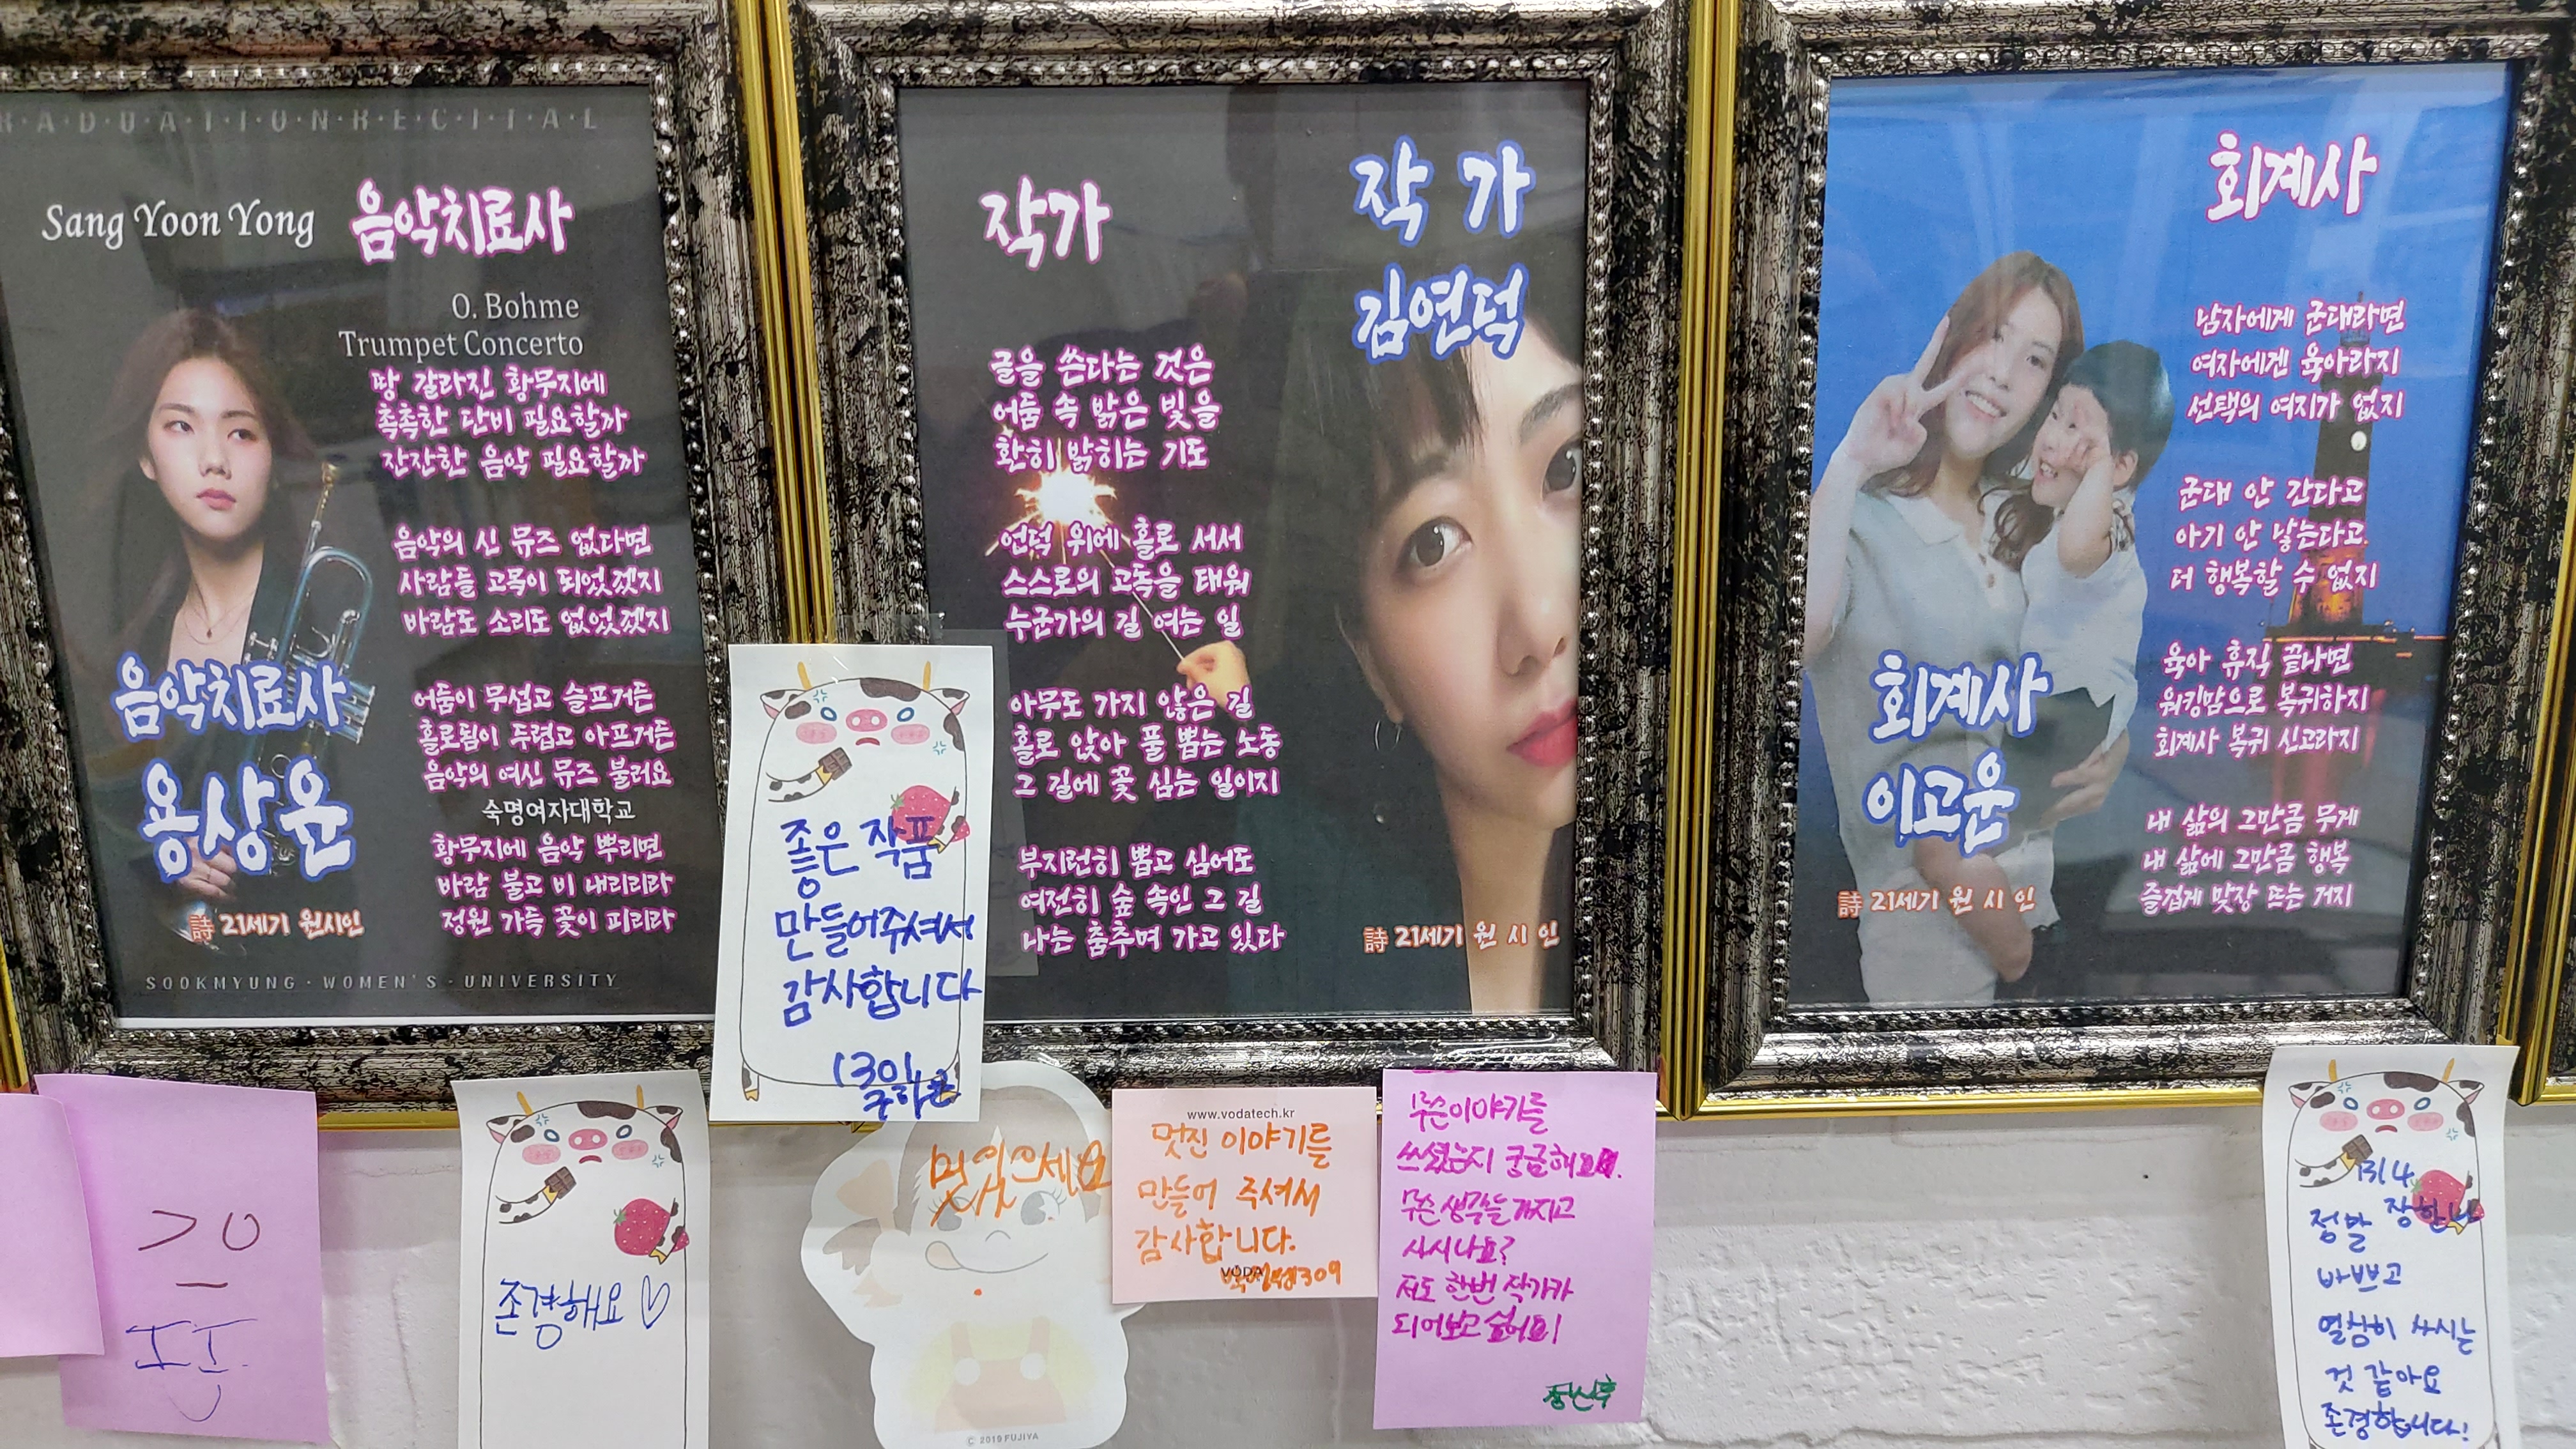 R·A·D·U·A·T·I·O·N·R·E·C·I·T·A·L
Sang Yoon Yong
음악치료사
O. Bohme
Trumpet Concerto
땅 갈라진 황무지에
촉촉한 단비 필요할까
잔잔한 음악 필요할까
음악의 신 뮤즈 없다면
사람들 고목이 되었겠지
바람도 소리도 없었겠지
어둠이 무섭고 슬프거든
홀로됨이 두렵고 아프거든
음악의 여신 뮤즈 불러요
숙명여자대학교
황무지에 음악 뿌리면
바람 불고 비 내리리라
정원 가득 꽃이 피리라
음악치료사
용상윤
詩 21세기 원시인
SOOKMYUNG · WOMEN'S · UNIVERSITY
작가
글을 쓴다는 것은
어둠 속 밝은 빛을
환히 밝히는 기도
언덕 위에 홀로 서서
스스로의 고독을 태워
누군가의 길 여는 일
아무도 가지 않은 길
홀로 앉아 풀 뽑는 노동
그 길에 꽃 심는 일이지
부지런히 뽑고 심어도
여전히 숲 속인 그 길
나는 춤추며 가고 있다
작 가
김연덕
詩 21세기 원 시 인
회계사
남자에게 군대라면
여자에겐 육아라지
선택의 여지가 없지
군대 안 간다고
아기 안 낳는다고
더 행복할 수 없지
육아 휴직 끝나면
워킹맘으로 복귀하지
회계사 복귀 신고라지
내 삶의 그만큼 무게
내 삶에 그만큼 행복
즐겁게 맞장 뜨는 거지
회계사
이고운
詩 21세기 원 시 인
좋은 작품
만들어주셔서
감사합니다
존경해요♡
멋있으세요
© 2019 FUJIYA
www.vodatech.kr
멋진 이야기를
만들어 주셔서
감사합니다.
VODA
무슨이야기를
쓰셨는지 궁금해요.
무슨생각들가지고
사시나요?
저도 한번 작가가
되어보고 싶어요!
정말
바쁘고
열심히 사시는
것 같아요
존경합니다!